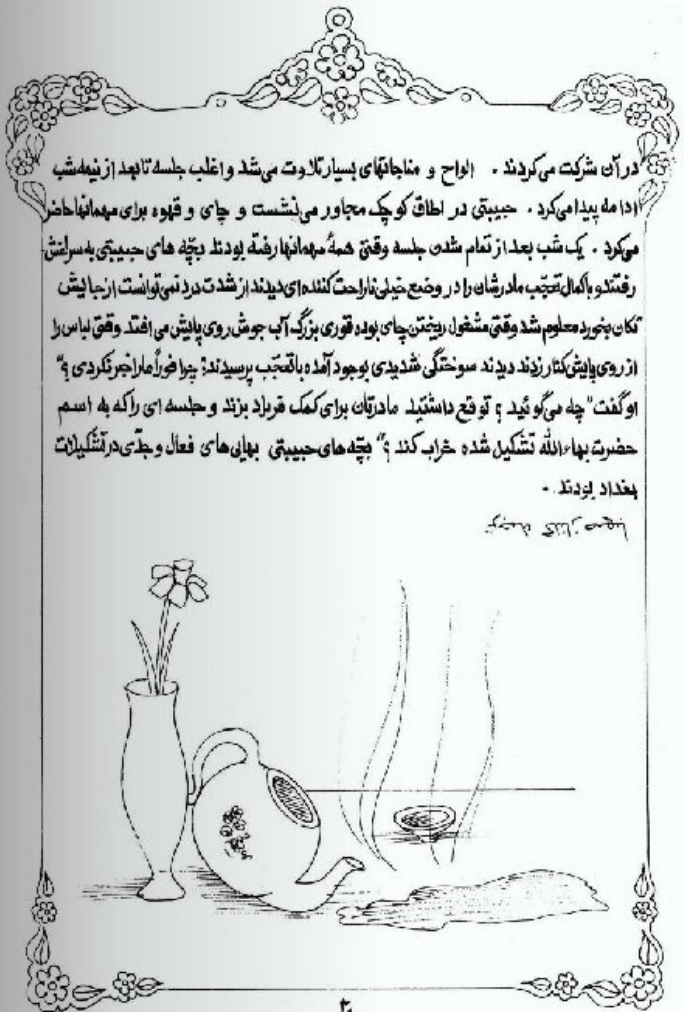 درآن شرکت می‌کردند . الواح و مناجاتهای بسیار تلاوت می‌شد و اغلب جلسه تا بعد از نیمه شب
ادامه پیدا می‌کرد . حبیبتی در اطاق کوچک مجاور می‌نشست و چای و قهوه برای مهمانها حاضر
می‌کرد . یک شب بعد از تمام شدن جلسه وقتی همهٔ مهمانها رفته بودند بچّه های حبیبتی به سراغش
رفتند و با کمال تعجّب مادرشان را در وضع خیلی ناراحت کننده ای دیدند از شدت درد نمی‌توانست از جایش
تکان بخورد معلوم شد وقتی مشغول ریختن چای بوده قوری بزرگ آب جوش روی پایش می افتد وقتی لباس را
از روی پایش کنار زدند دیدند سوختگی شدیدی بوجود آمده با تعجّب پرسیدند: چرا فوراً ما را خبر نکردی ؟"
او گفت "چه می‌گوئید ؟ توقع داشتید مادرتان برای کمک فریاد بزند و جلسه ای را که به اسم
حضرت بهاءالله تشکیل شده خراب کند ؟" بچّه های حبیبتی بهایی‌های فعال و جدّی در تشکیلات
بغداد بودند .
ترجمه گلنار صهبا